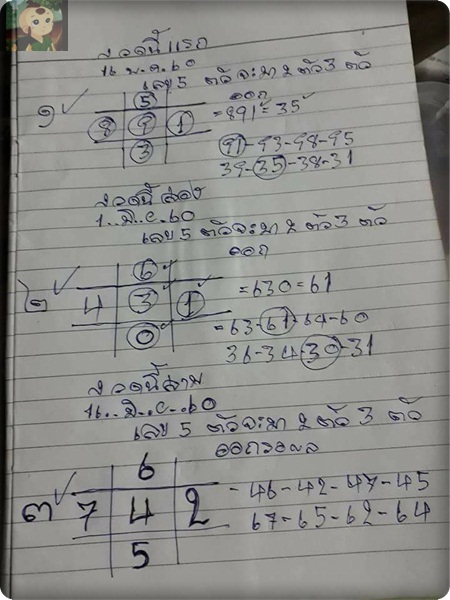 งวดนี้ แรก
16 พ.ค.60
เลข 5 ตัวจะมา 2 ตัว 3 ตัว
ออก
๑ ✓
5
8 9 1
3
=891 = 35
91-93-98-95
39-35-38-31
งวดนี้ สอง
1..มิ.ย.60
เลข 5 ตัวจะมา 2 ตัว 3 ตัว
ออก
๒ ✓
6
4 3 1
0
=630=61
=63-61-64-60
36-34-30-31
งวดนี้ สาม
16..มิ..ย..60
เลข 5 ตัวจะมา 2 ตัว 3 ตัว
๓ ✓
6
7 4 2
5
-46-42-47-45
67-65-62-64